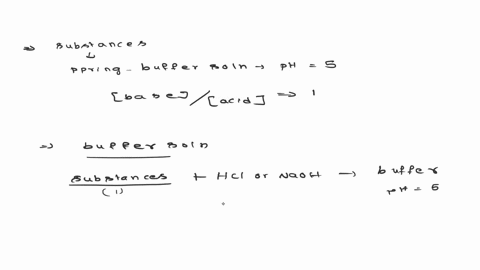 ⇒ substances
↓
ppring - buffer soln → pH = 5
[base]/[acid] ⇒ 1
⇒ buffer soln
substances + HCl or NaOH → buffer
(1) pH = 5